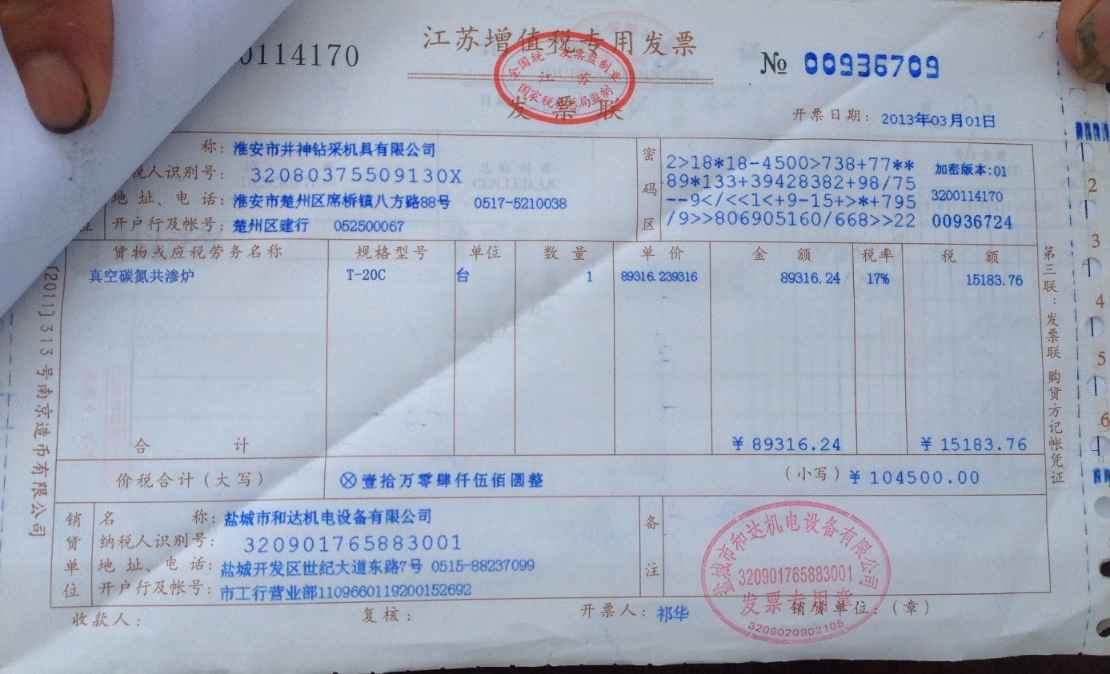 0114170
江苏增值税专用发票
发票联
全国统一发票监制章
江苏
国家税务局监制
№ 00936709
开票日期: 2013年03月01日
称: 淮安市井神钻采机具有限公司
税人识别号: 32080375509130X
地址、电话: 淮安市楚州区席桥镇八方路88号 0517-5210038
开户行及帐号: 楚州区建行 052500067
密码区
2>18*18-4500>738+77** 加密版本:01
89*133+39428382+98/75 3200114170
--9</<<1<+9-15+>*+795
/9>>806905160/668>>22 00936724
货物或应税劳务名称 规格型号 单位 数量 单价 金额 税率 税额
真空碳氮共渗炉 T-20C 台 1 89316.239316 89316.24 17% 15183.76
合计 ¥89316.24 ¥15183.76
价税合计(大写) ⊗壹拾万零肆仟伍佰圆整 (小写) ¥104500.00
销货单位
名称: 盐城市和达机电设备有限公司
纳税人识别号: 320901765883001
地址、电话: 盐城开发区世纪大道东路7号 0515-88237099
开户行及帐号: 市工行营业部1109660119200152692
备注
收款人: 复核: 开票人: 祁华 销货单位:(章)
盐城市和达机电设备有限公司
320901765883001
发票专用章
3209020902105
[2011]313号南京造币有限公司
第三联:发票联 购货方记帐凭证
2
3
4
5
6